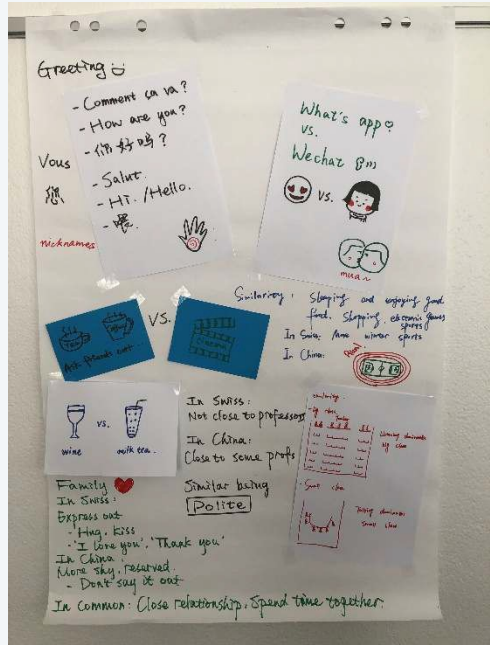 Greeting
- Comment ça va?
- How are you?
- 你好吗?
- Salut.
- Hi. /Hello.
- 喂
Vous
您
nicknames
What's app?
vs.
Wechat
vs.
mua~
Tea
Coffee
Ask friends out
VS.
Cinema
Similarity: Sleeping and enjoying good
food. Shopping, electronic games
sports
In Swiss: More winter sports
In China:
wine
vs.
milk tea.
In Swiss:
Not close to professors
In China:
Close to some profs
Similar being
Polite
Big class
Big class
Small class
Small class
Family
In Swiss:
Express out
- Hug, kiss
- 'I love you', 'Thank you'
In China:
More shy, reserved.
- Don't say it out
In common: Close relationship, Spend time together.